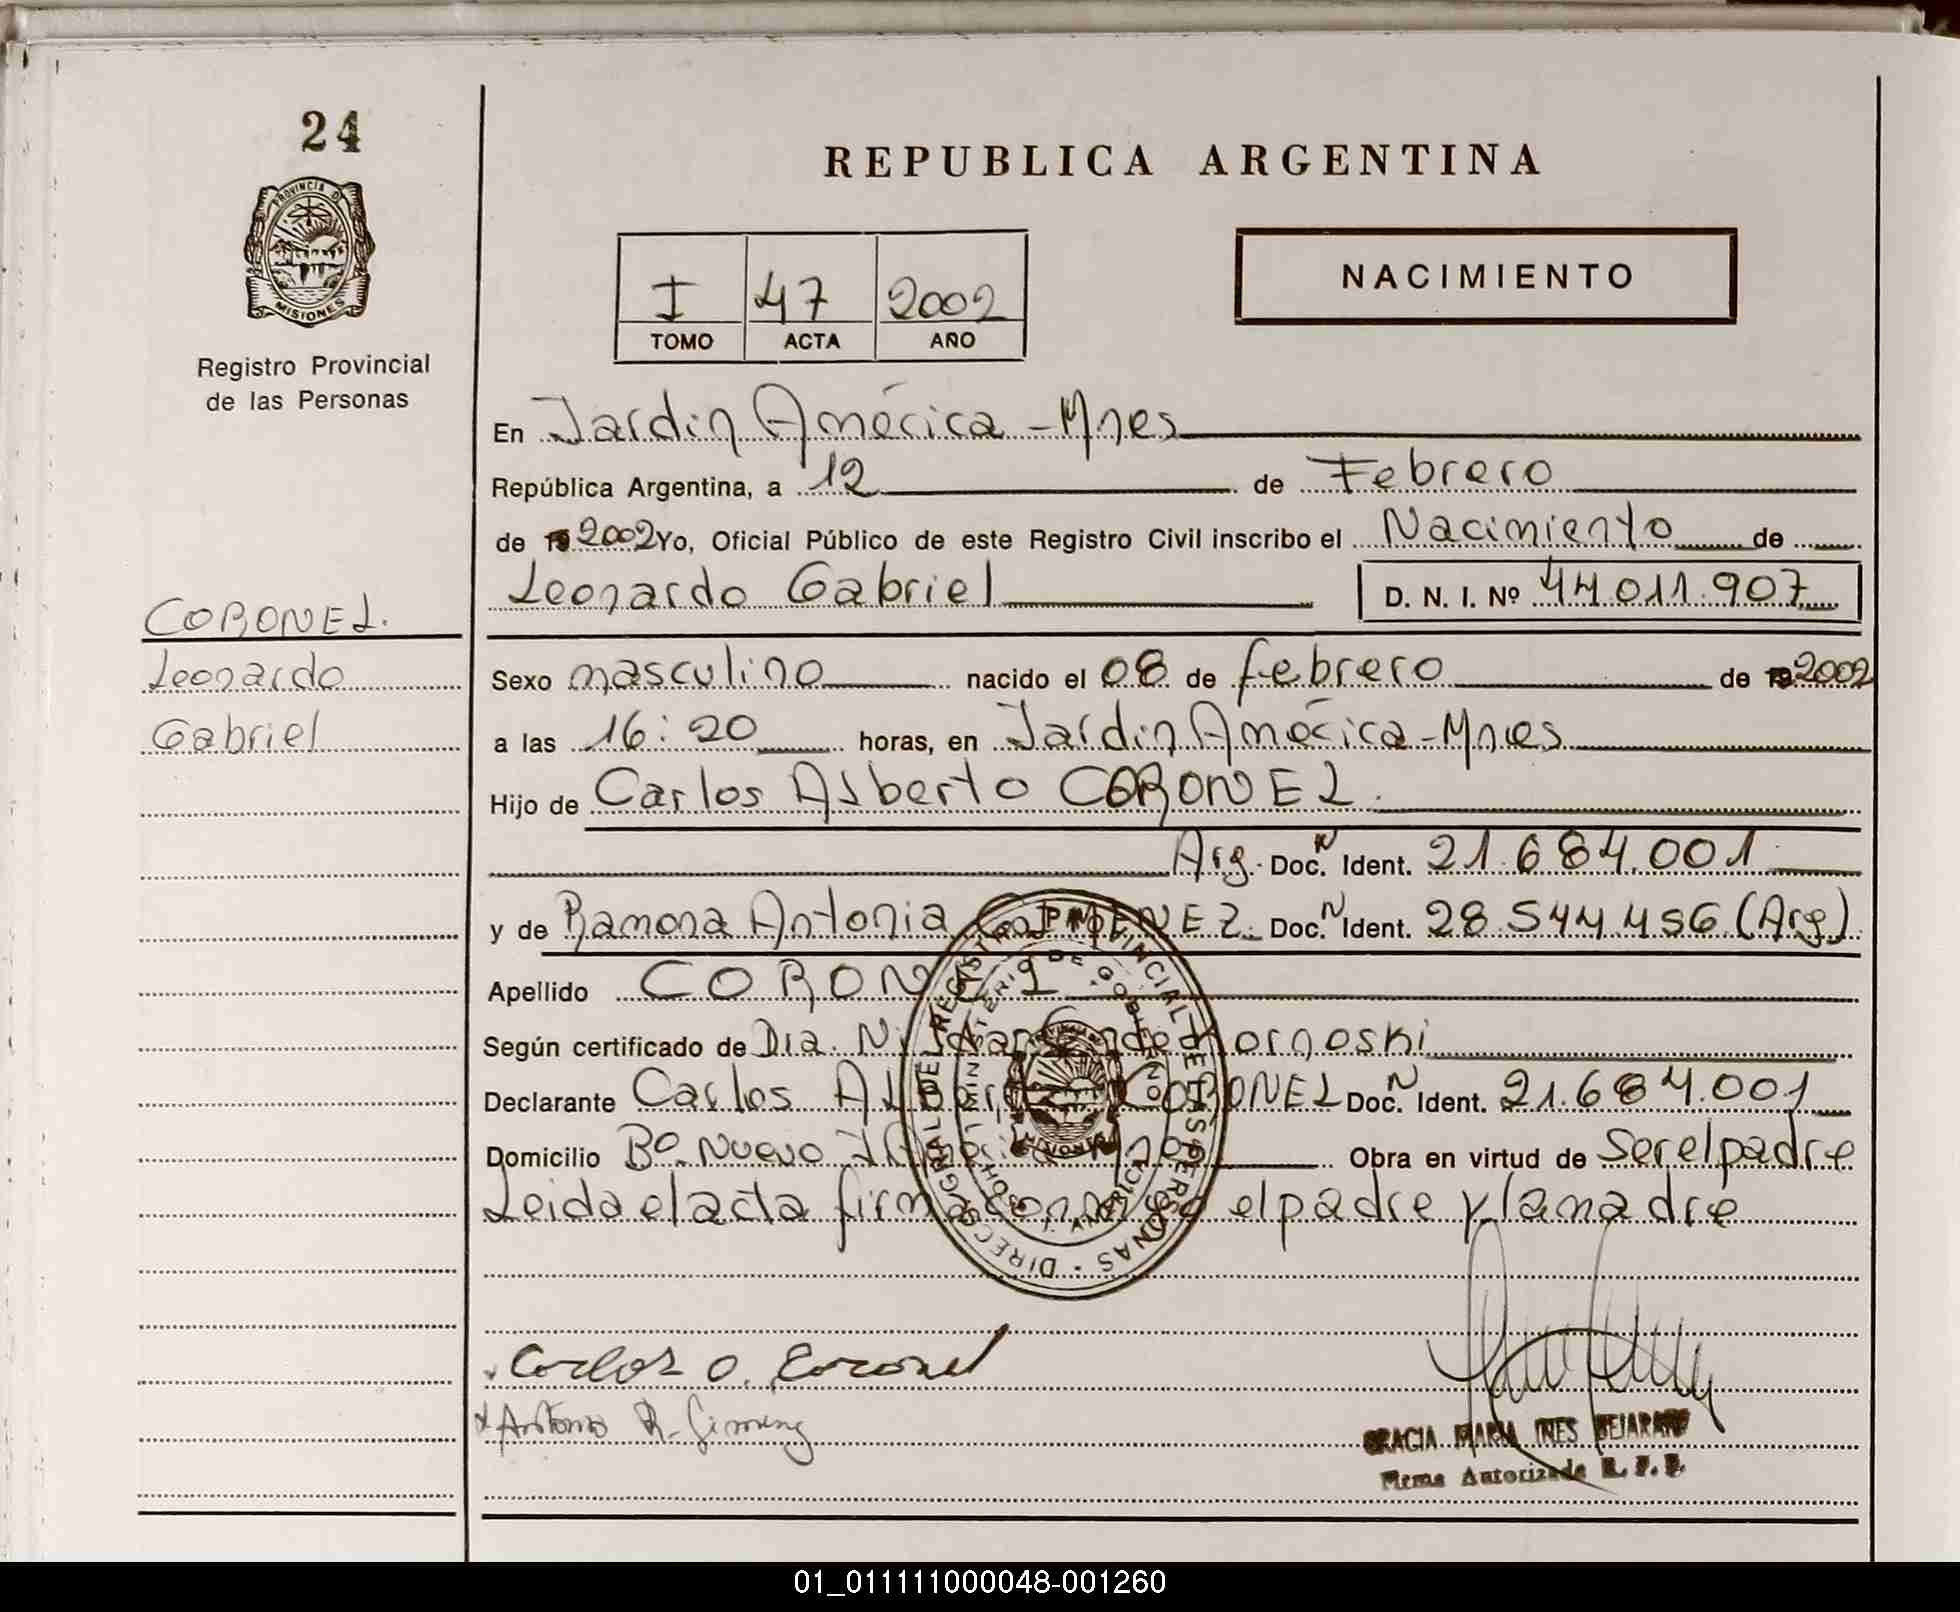 24
REPUBLICA ARGENTINA
PROVINCIA DE
MISIONES
Registro Provincial
de las Personas
NACIMIENTO
I 47 2002
TOMO ACTA AÑO
En Jardin América - Mnes
República Argentina, a 12 de Febrero
de 19 2002 Yo, Oficial Público de este Registro Civil inscribo el Nacimiento de
Leonardo Gabriel D. N. I. Nº 44.011.907
CORONEL.
Leonardo
Gabriel
Sexo masculino nacido el 08 de febrero de 19 2002
a las 16:20 horas, en Jardin América - Mnes
Hijo de Carlos Alberto CORONEL.
Arg. Doc. N Ident. 21.684.001
y de Ramona Antonia Doc. N Ident. 28.544.456 (Arg)
Apellido CORONEL
Según certificado de Dra. Kornoski
Declarante Carlos Alberto CORONEL Doc. N Ident. 21.684.001
Domicilio Bº Nuevo J. América Mnes Obra en virtud de Ser el padre
Leida el acta firma conmigo el padre y la madre
DIRECC. GRAL. DE REGISTRO PROVINCIAL DE LAS PERSONAS
MINISTERIO DE GOBIERNO
MISIONES
Carlos A. Coronel
x Antonia R. Gimenez
GRACIA MARIA INES BEJARANO
Firma Autorizada R. P. P.
01_011111000048-001260